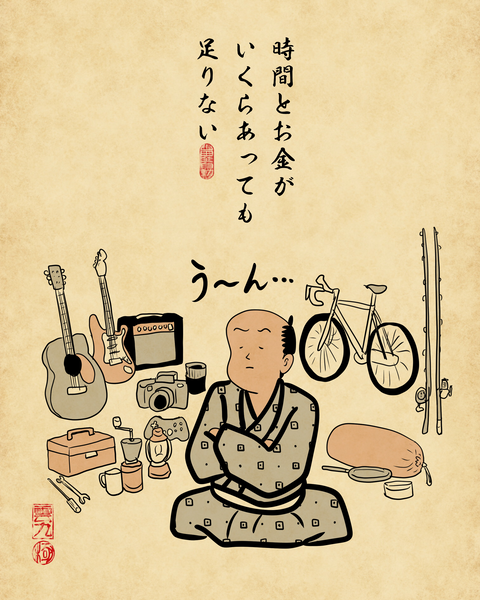 時間とお金が
いくらあっても
足りない
う〜ん…